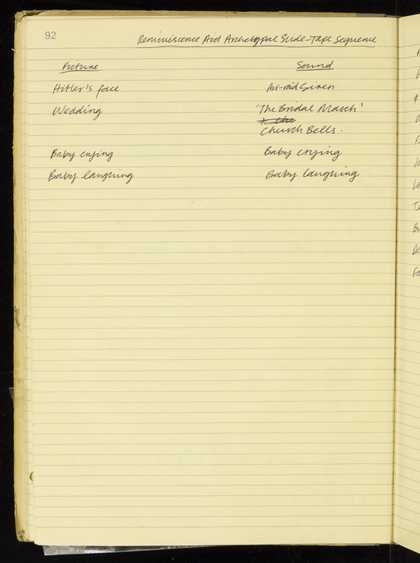 92
Reminiscence Aid Archetypal Slide-Tape Sequence
Picture Sound
Hitler's face Air-raid Siren
Wedding 'The Bridal March'
& the
Church Bells.
Baby crying Baby crying
Baby laughing Baby laughing